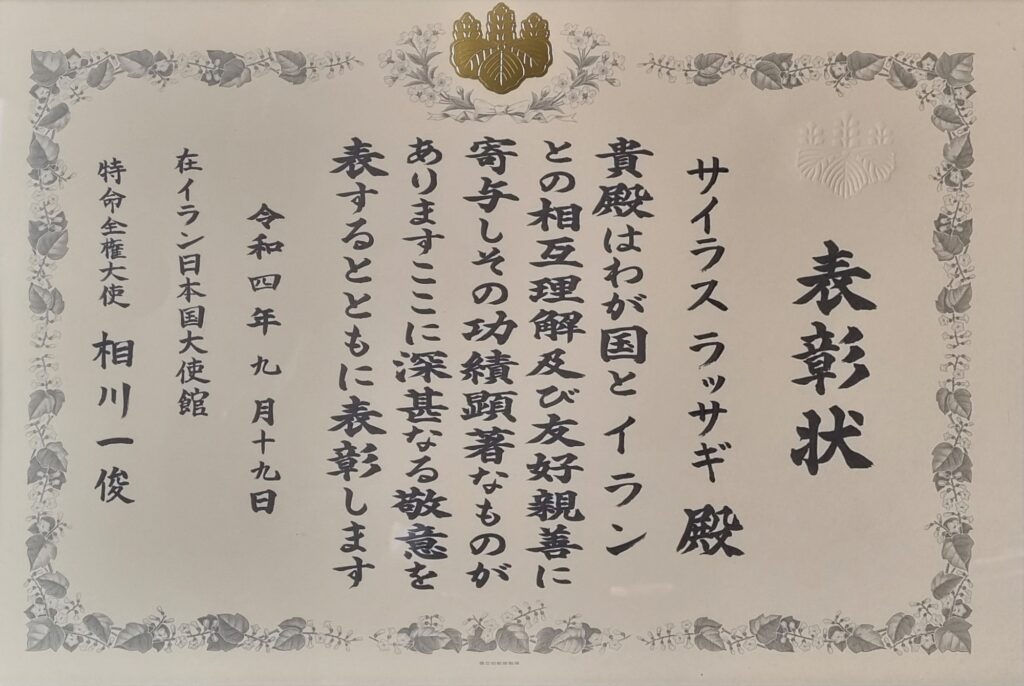 表彰状
サイラス ラッサギ 殿
貴殿はわが国とイラン
との相互理解及び友好親善に
寄与しその功績顕著なものが
ありますここに深甚なる敬意を
表するとともに表彰します
令和四年九月十九日
在イラン日本国大使館
特命全権大使 相川一俊